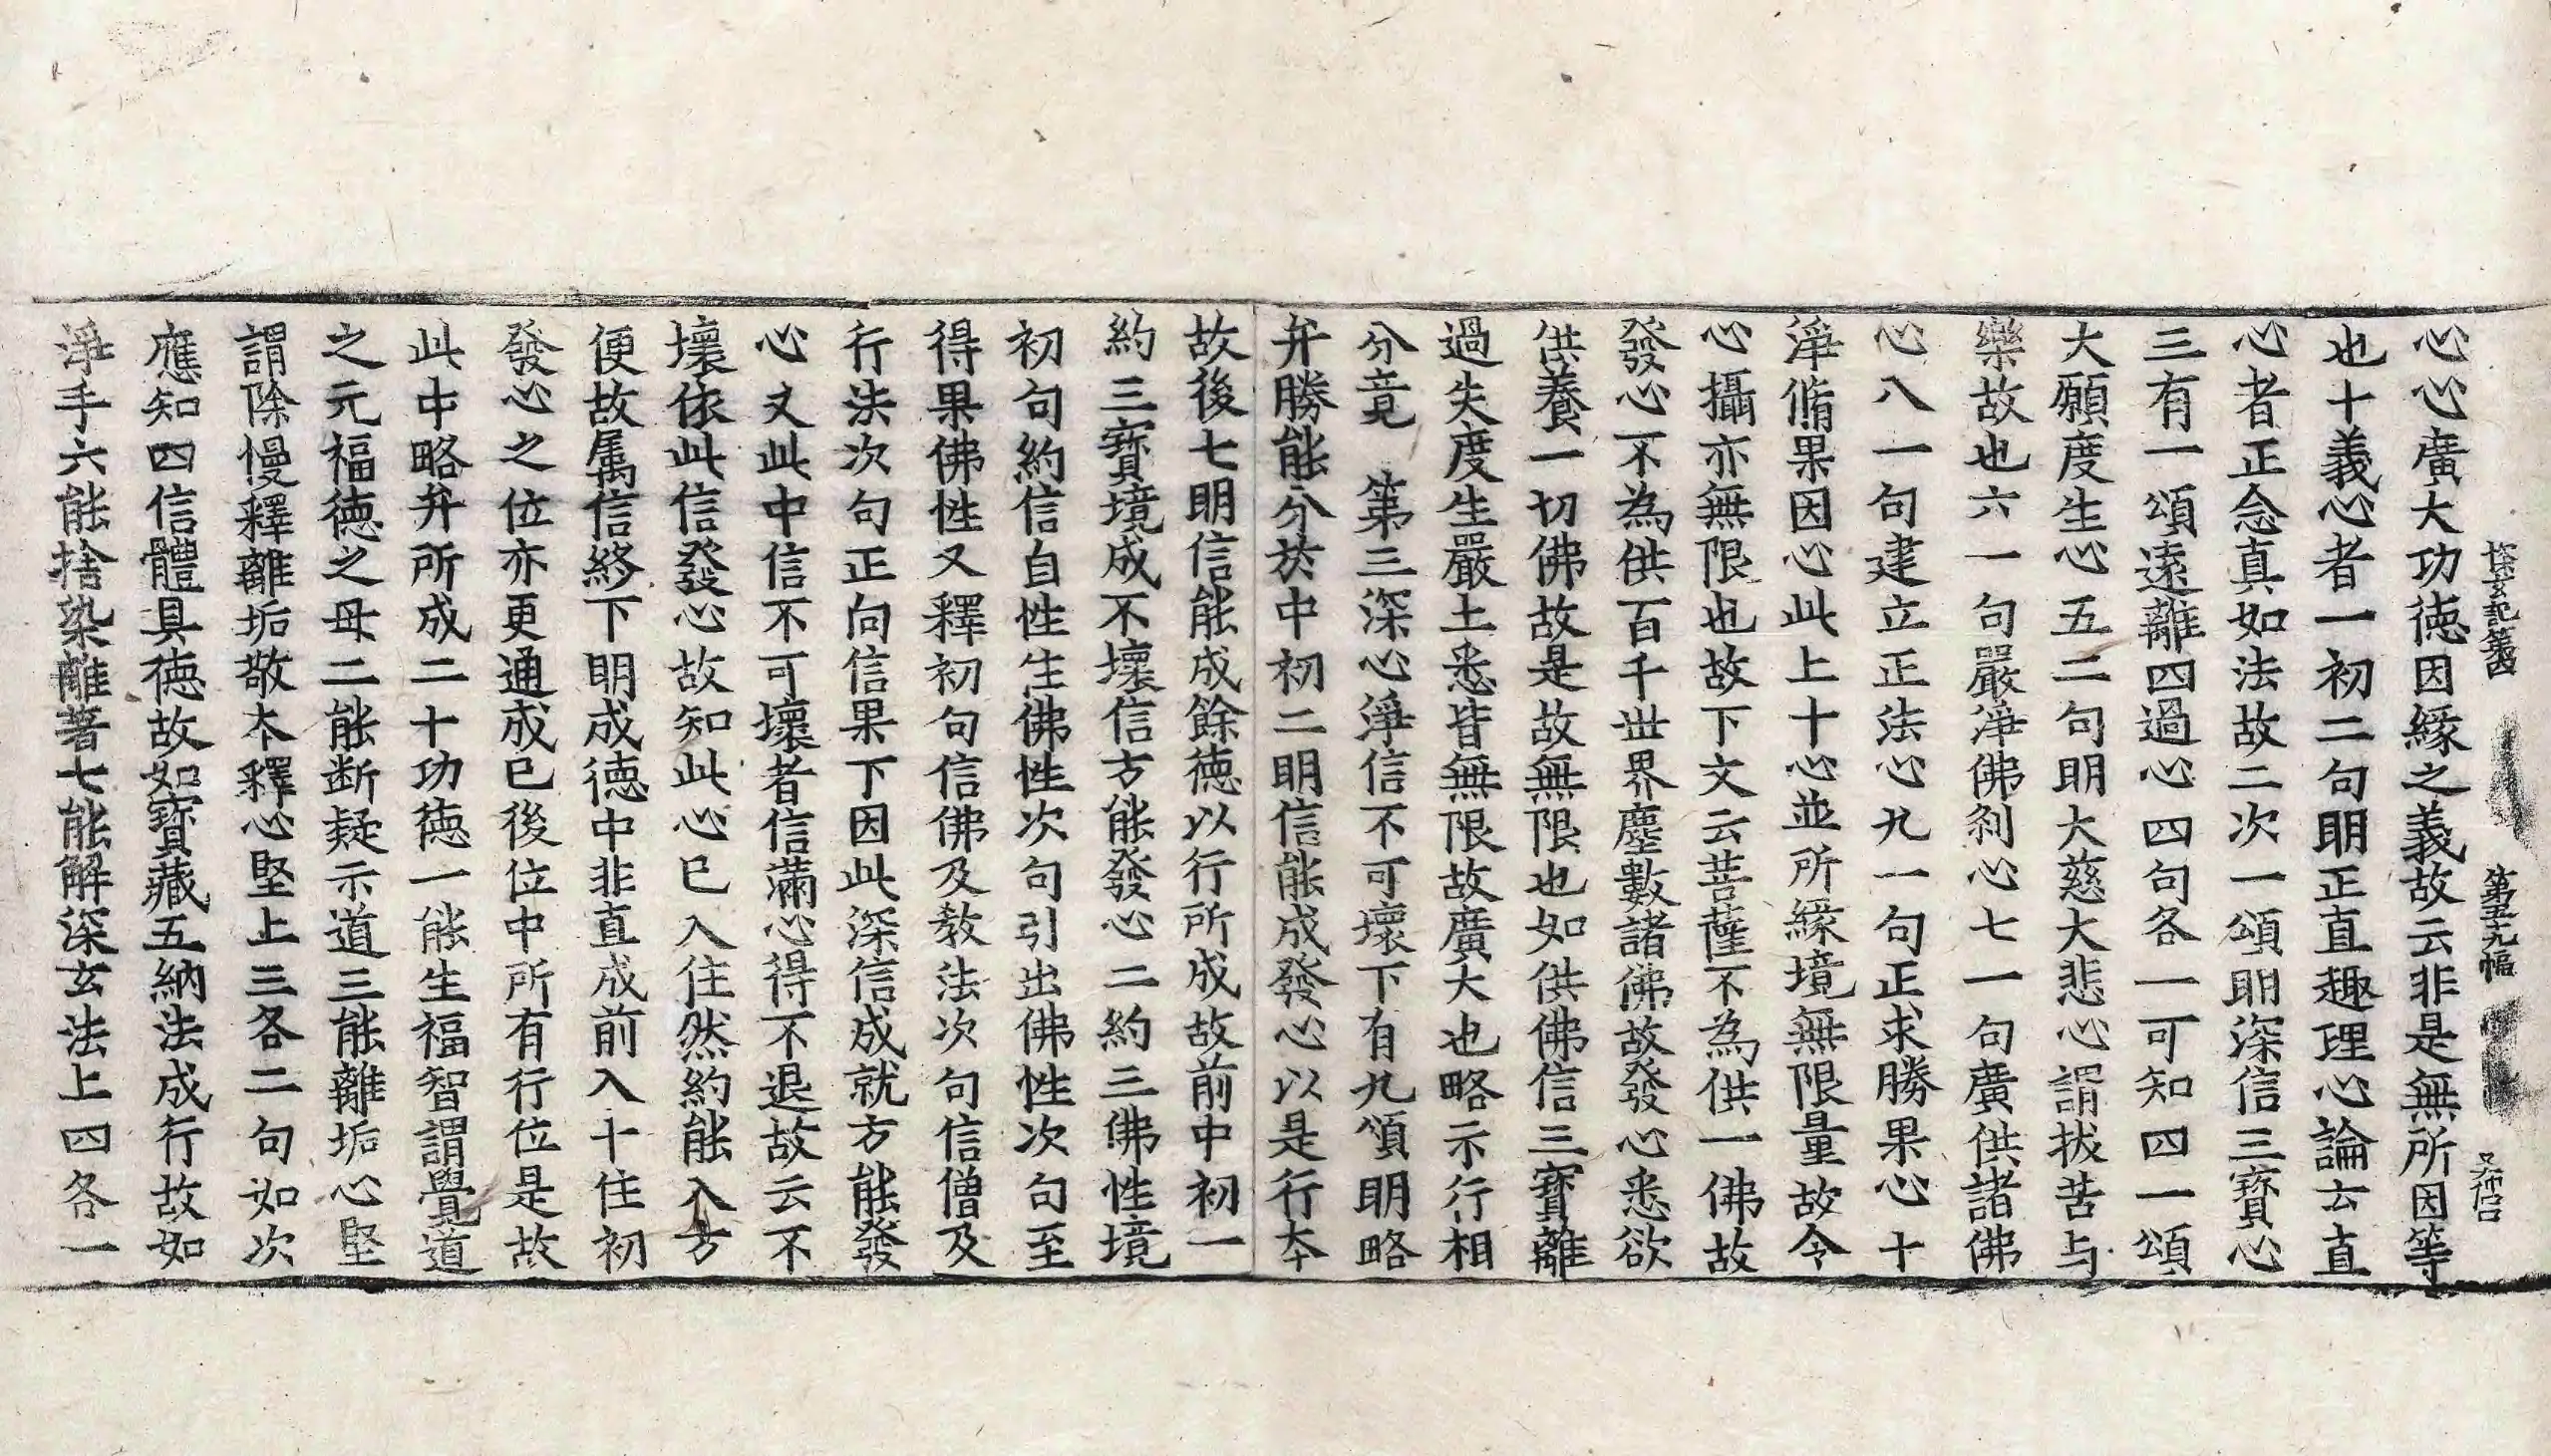 探玄記第四 第五十九幅 又
心心廣大功德因緣之義故云非是無所因等
也十義心者一初二句明正直趣理心論云直
心者正念真如法故二次一頌明深信三寶心
三有一頌遠離四過心四句各一可知四一頌
大願度生心五二句明大慈大悲心謂拔苦与
樂故也六一句嚴淨佛刹心七一句廣供諸佛
心八一句建立正法心九一句正求勝果心十
淨脩果因心此上十心並所緣境無限量故令
心攝亦無限也故下文云菩薩不為供一佛故
發心不為供百千世界塵數諸佛故發心悉欲
供養一切佛故是故無限也如供佛信三寶離
過失度生嚴土悉皆無限故廣大也略示行相
分竟 第三深心淨信不可壞下有九頌明略
弁勝能分於中初二明信能成發心以是行本
故後七明信能成餘德以行所成故前中初一
約三寶境成不壞信方能發心二約三佛性境
初句約信自性生佛性次句引出佛性次句至
得果佛性又釋初句信佛及教法次句信僧及
行法次句正向信果下因此深信成就方能發
心又此中信不可壞者信滿心得不退故云不
壞依此信發心故知此心已入住然約能入方
便故属信終下明成德中非直成前入十住初
發心之位亦更通成已後位中所有行位是故
此中略弁所成二十功德一能生福智謂覺道
之元福德之母二能断疑示道三能離垢心堅
謂除慢釋離垢敬本釋心堅上三各二句如次
應知四信體具德故如寶藏五納法成行故如
淨手六能捨染離著七能解深玄法上四各一